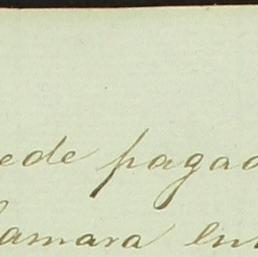 ede pagad
amara en